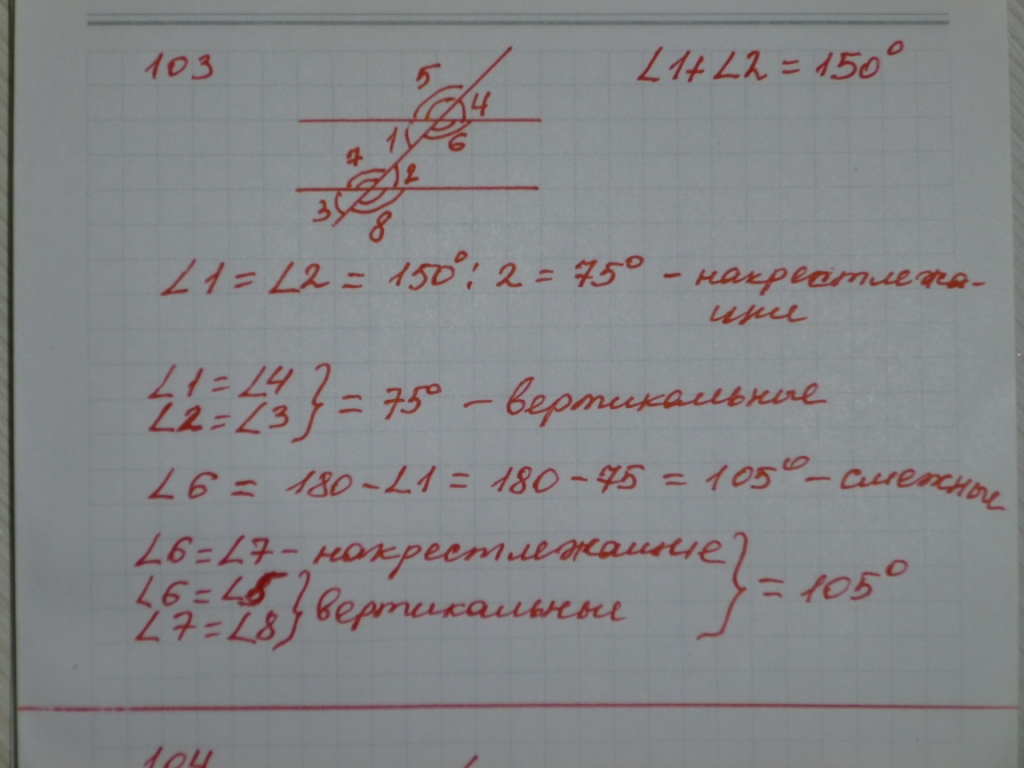 103
∠1+∠2 = 150°
5
4
1
6
7
2
3
8
∠1 = ∠2 = 150° : 2 = 75° – накрестлежа-
щие
∠1 = ∠4
∠2 = ∠3 } = 75° – вертикальные
∠6 = 180 – ∠1 = 180 – 75 = 105° – смежные
∠6 = ∠7 – накрестлежащие
∠6 = ∠5
∠7 = ∠8 } вертикальные } = 105°
104